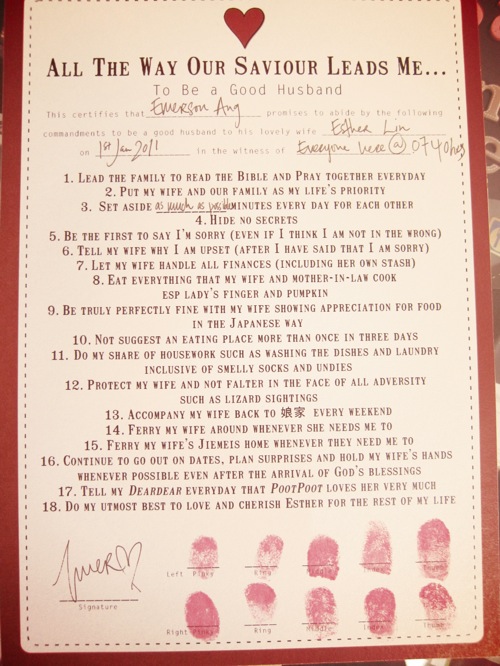 ALL THE WAY OUR SAVIOUR LEADS ME...
To Be a Good Husband
This certifies that Emerson Ang promises to abide by the following
commandments to be a good husband to his lovely wife Esther Lin
on 1st Jan 2011 in the witness of Everyone here @ 0740hrs
1. LEAD THE FAMILY TO READ THE BIBLE AND PRAY TOGETHER EVERYDAY
2. PUT MY WIFE AND OUR FAMILY AS MY LIFE'S PRIORITY
3. SET ASIDE as much as possible MINUTES EVERY DAY FOR EACH OTHER
4. HIDE NO SECRETS
5. BE THE FIRST TO SAY I'M SORRY (EVEN IF I THINK I AM NOT IN THE WRONG)
6. TELL MY WIFE WHY I AM UPSET (AFTER I HAVE SAID THAT I AM SORRY)
7. LET MY WIFE HANDLE ALL FINANCES (INCLUDING HER OWN STASH)
8. EAT EVERYTHING THAT MY WIFE AND MOTHER-IN-LAW COOK
ESP LADY'S FINGER AND PUMPKIN
9. BE TRULY PERFECTLY FINE WITH MY WIFE SHOWING APPRECIATION FOR FOOD
IN THE JAPANESE WAY
10. NOT SUGGEST AN EATING PLACE MORE THAN ONCE IN THREE DAYS
11. DO MY SHARE OF HOUSEWORK SUCH AS WASHING THE DISHES AND LAUNDRY
INCLUSIVE OF SMELLY SOCKS AND UNDIES
12. PROTECT MY WIFE AND NOT FALTER IN THE FACE OF ALL ADVERSITY
SUCH AS LIZARD SIGHTINGS
13. ACCOMPANY MY WIFE BACK TO 娘家 EVERY WEEKEND
14. FERRY MY WIFE AROUND WHENEVER SHE NEEDS ME TO
15. FERRY MY WIFE'S JIEMEIS HOME WHENEVER THEY NEED ME TO
16. CONTINUE TO GO OUT ON DATES, PLAN SURPRISES AND HOLD MY WIFE'S HANDS
WHENEVER POSSIBLE EVEN AFTER THE ARRIVAL OF GOD'S BLESSINGS
17. TELL MY DEARDEAR EVERYDAY THAT POOTPOOT LOVES HER VERY MUCH
18. DO MY UTMOST BEST TO LOVE AND CHERISH ESTHER FOR THE REST OF MY LIFE
Signature
Left Pinky Ring Middle Index Thumb
Right Pinky Ring Middle Index Thumb